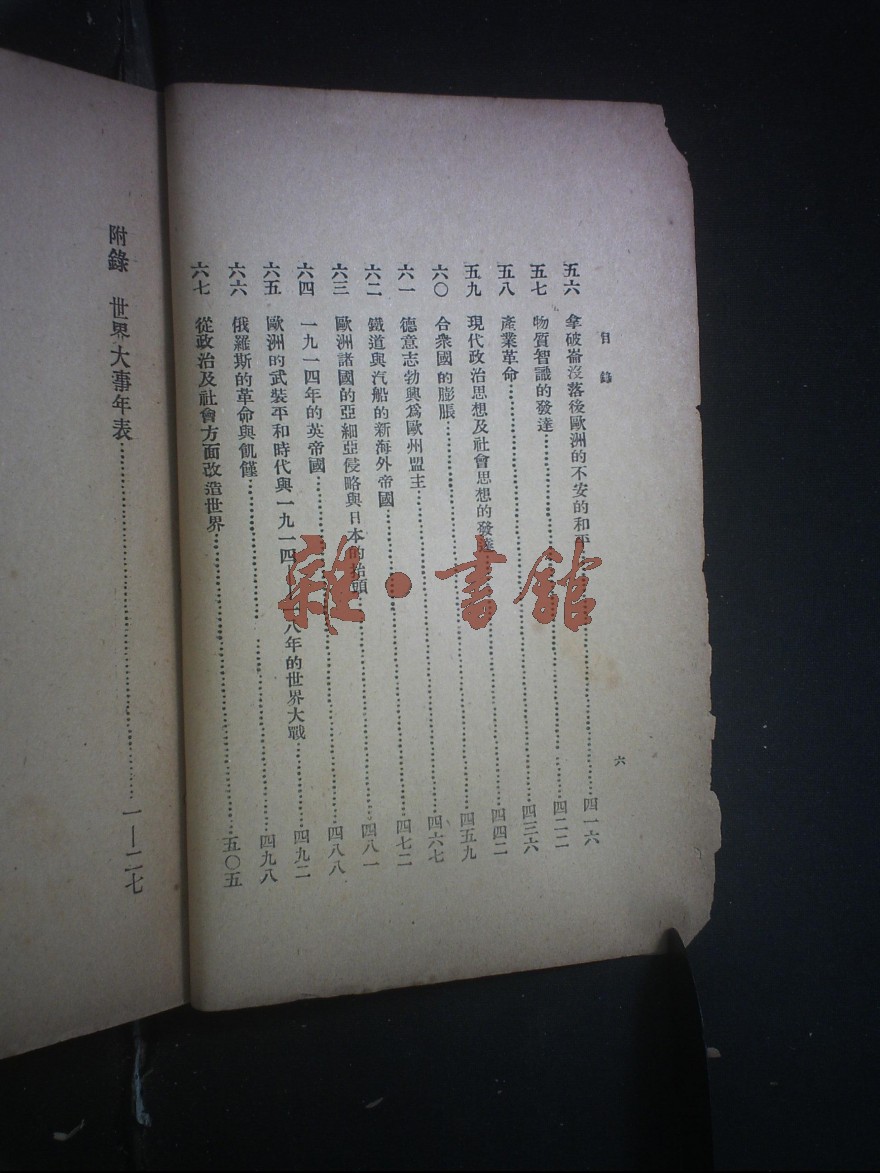 目錄
六
五六 拿破崙沒落後歐洲的不安的和平……四一六
五七 物質智識的發達……四二二
五八 產業革命……四三六
五九 現代政治思想及社會思想的發達……四四二
六〇 合衆國的膨脹……四五九
六一 德意志勃興爲歐州盟主……四六七
六二 鐵道與汽船的新海外帝國……四七二
六三 歐洲諸國的亞細亞侵略與日本的抬頭……四八一
六四 一九一四年的英帝國……四八八
六五 歐洲的武裝平和時代與一九一四—一八年的世界大戰……四九二
六六 俄羅斯的革命與飢饉……四九八
六七 從政治及社會方面改造世界……五〇五
附錄 世界大事年表……一—二七
雜·書館